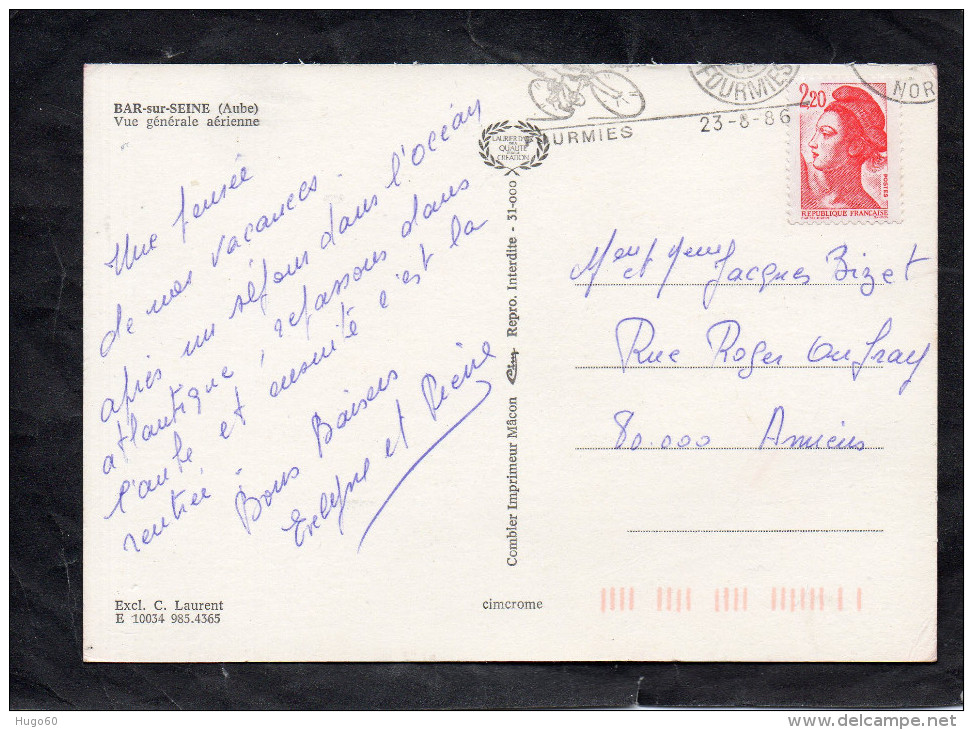 BAR-sur-SEINE (Aube)
Vue générale aérienne
Une pensée
de mes vacances.
après un séjour dans l'océan
atlantique, repassons dans
l'aube et ensuite c'est la
rentrée.
Bons Baisers
Evelyne et Pierre
Excl. C. Laurent
E 10034 985.4365
cimcrome
Combier Imprimeur Mâcon Cim Repro. Interdite - 31-000
QUALITÉ
CRÉATION
FOURMIES
23-8-86
DE
FOURMIES
NOR
2,20
POSTES
REPUBLIQUE FRANÇAISE
Jacques Bizet
Rue Roger
80.000 Amiens
Hugo60
delcampe.net